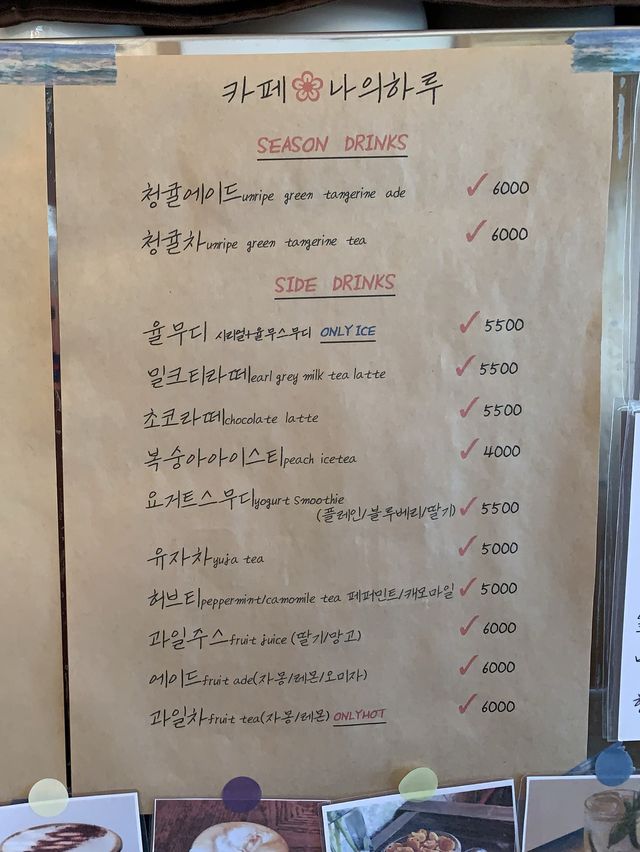 카페 나의하루
SEASON DRINKS
청귤에이드 unripe green tangerine ade ✓ 6000
청귤차 unripe green tangerine tea ✓ 6000
SIDE DRINKS
율무디 시리얼+율무스무디 ONLY ICE ✓ 5500
밀크티라떼 earl grey milk tea latte ✓ 5500
초코라떼 chocolate latte ✓ 5500
복숭아아이스티 peach icetea ✓ 4000
요거트스무디 yogurt smoothie
(플레인/블루베리/딸기) ✓ 5500
유자차 yuja tea ✓ 5000
허브티 peppermint/camomile tea 페퍼민트/캐모마일 ✓ 5000
과일주스 fruit juice (딸기/망고) ✓ 6000
에이드 fruit ade (자몽/레몬/오미자) ✓ 6000
과일차 fruit tea (자몽/레몬) ONLY HOT ✓ 6000